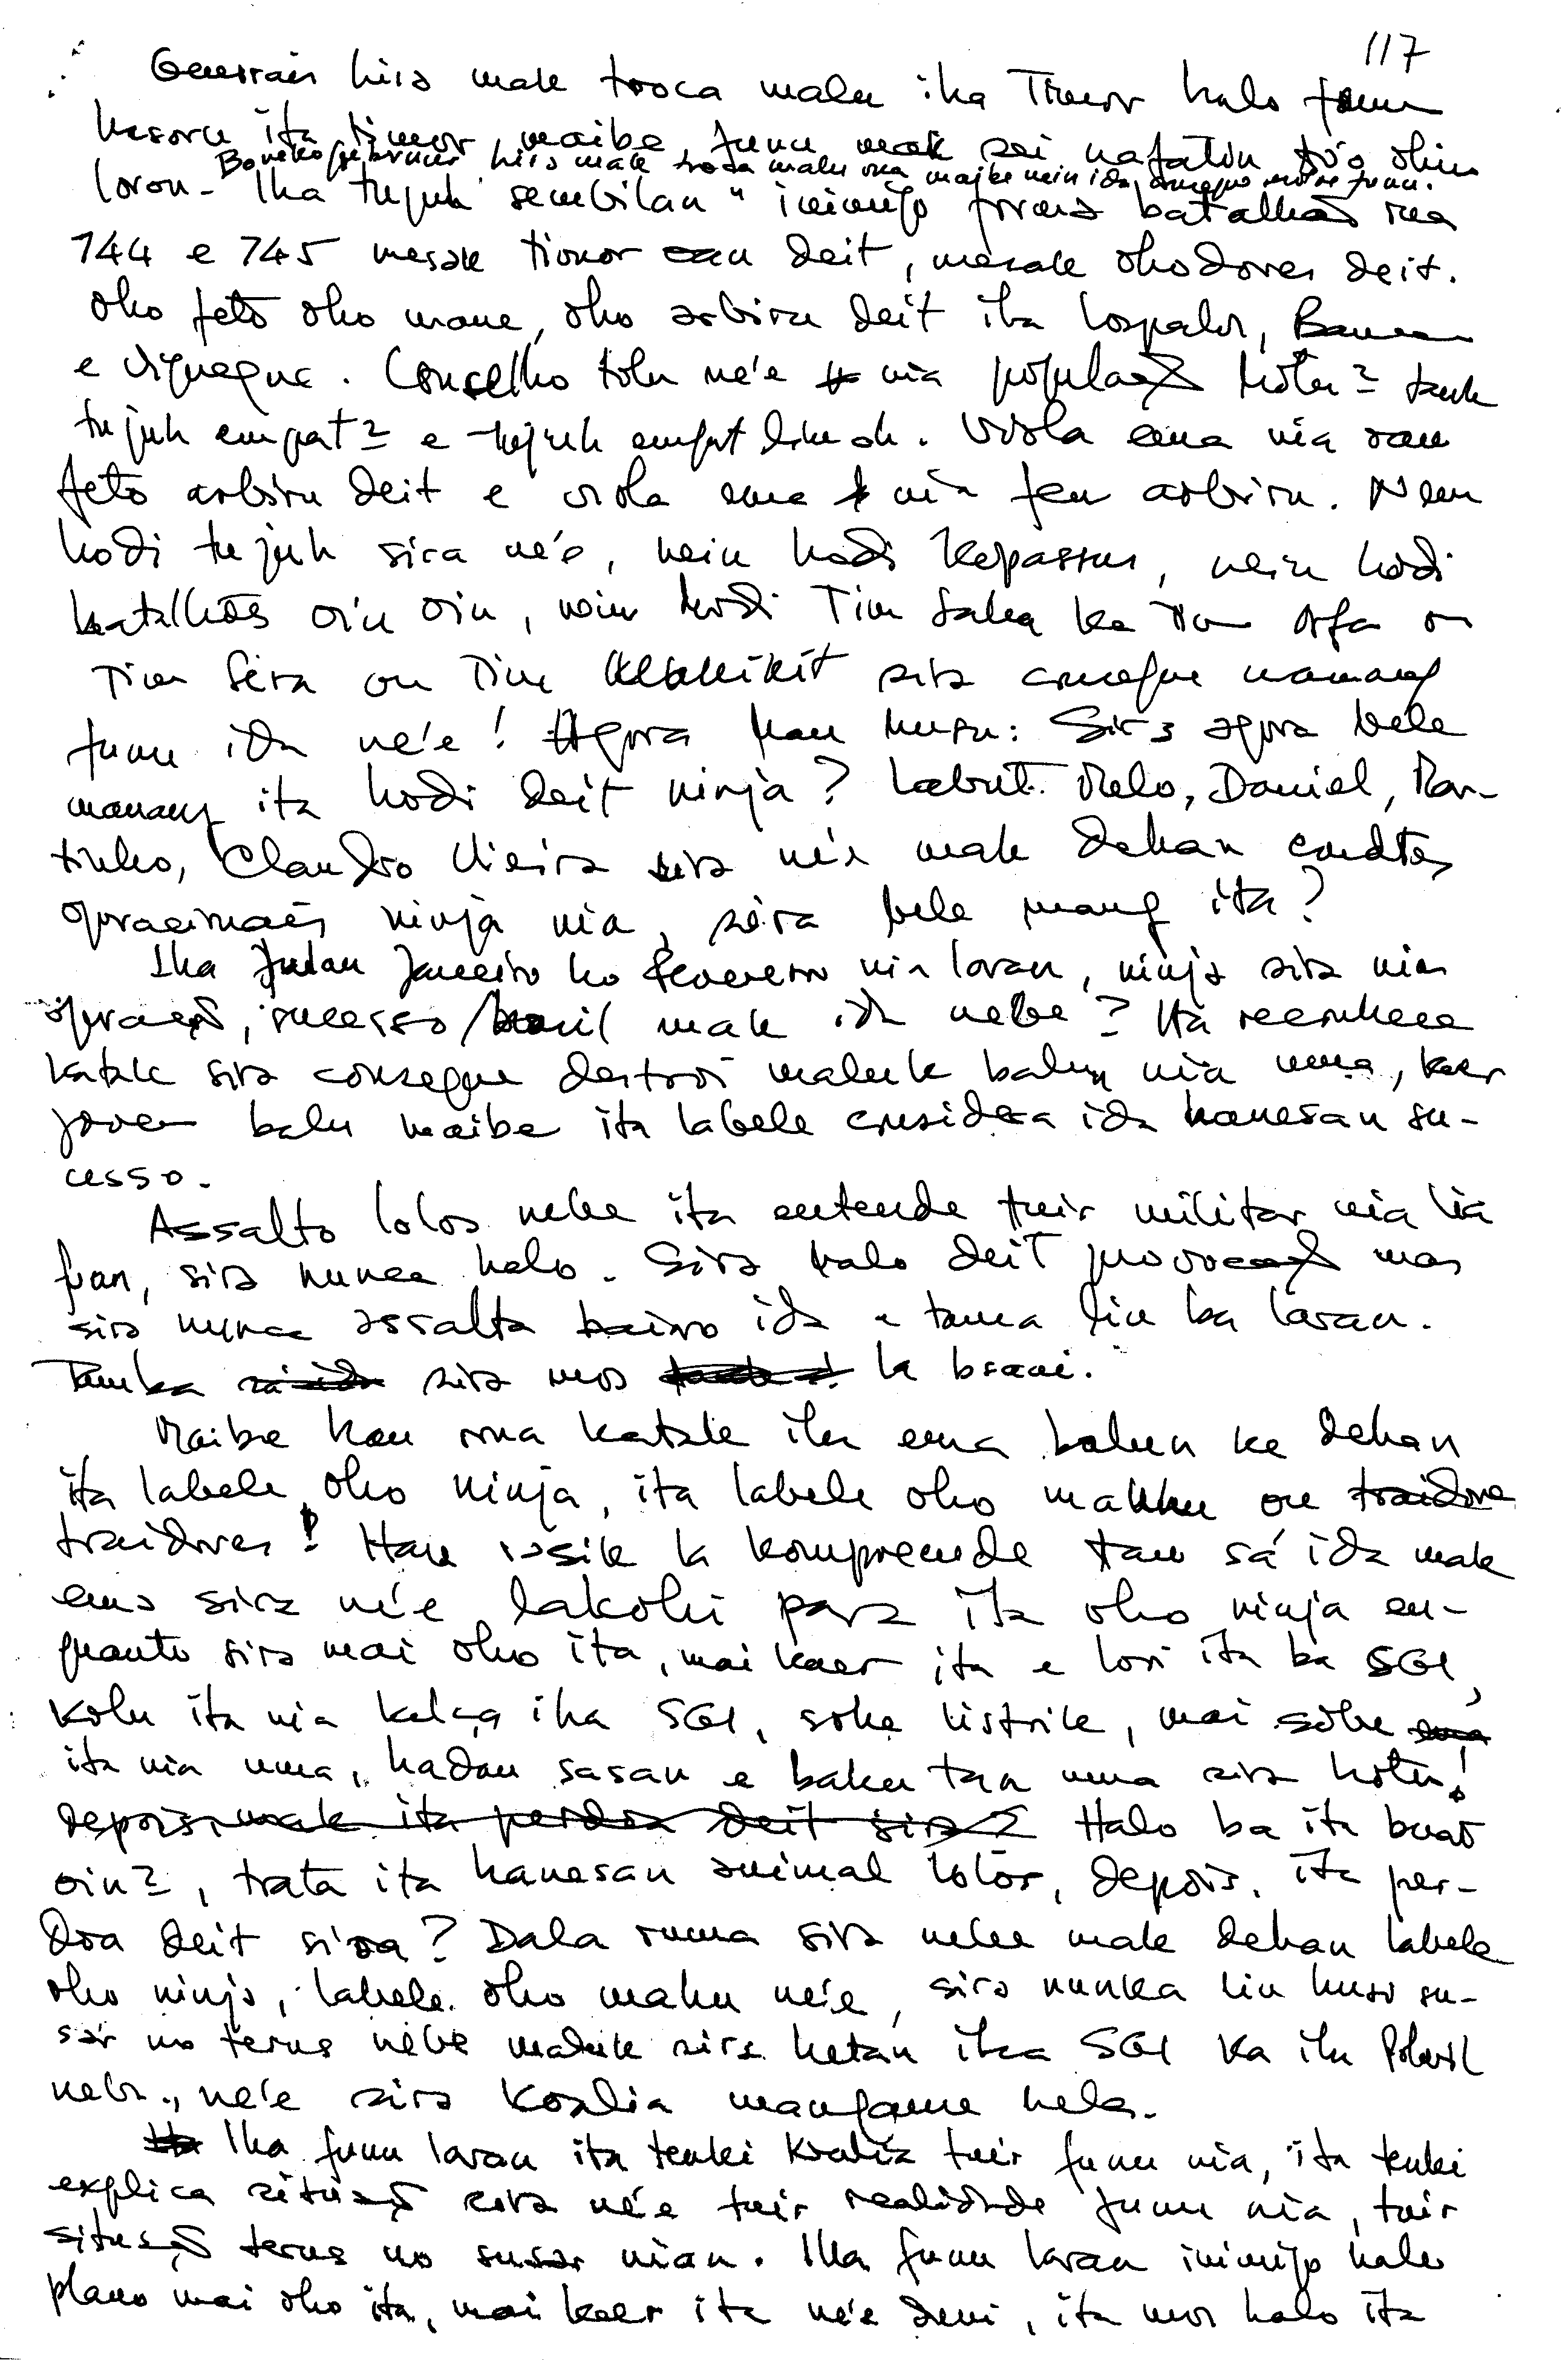 117
Generais hira mak troca malu iha Timor halo funu
hasoru ita timor, maibe funu mak sei nafatin to'o ohin
hira mak troca malu ona maibe nein ida consegue
loron - Iha tujuh sembilan" inimigo forma batalhão rua
744 e 745 mesak timor oan deit, mesak ohodores deit.
Oho feto oho mane, oho arbiru deit iha Lospalos, Baucau
e Viqueque. Concelho tolu ne'e nia população hotu2 tauk
tujuh empat2 e tujuh empat limah. Viola ema nia oan
feto arbiru deit e viola ema nia fen arbiru. Nem
hodi tujuh sira ne'e, nein hodi Kopassus, nein hodi
batalhões oin oin, nein hodi Tim Saka ka Tim Alfa ou
Tim Sera ou Tim Makikit sira consegue manang
funu ida ne'e! Agora hau husu: Sira agora bele
manang ita hodi deit ninja? Labut Melo, Daniel, Mar-
tinho, Claudio Vieira sira ne'e mak dehan cmdtes
operacionais ninja nia, sira bele manang ita?
Iha fulan Janeiro ho Fevereiro nia laran, ninja sira nia
operação, sucesso/hasil mak ida nebe? Ita reconhece
katak sira consegue destroi maluk balu nia uma, kaer
joven balu maibe ita labele considera ida hanesan su-
cesso.
Assalto lolos nebe ita entende tuir militar nia lia
fuan, sira nunca halo. Sira halo deit provocação mas
sira nunca assalta bairro ida e tama liu ba laran.
Tamba sira mos la brani.
Maibe hau rona katak iha ema balun ke dehan
ita labele oho ninja, ita labele oho mauhu ou
traidores! Hau rasik la komprende tan sá ida mak
ema sira ne'e lakohi para ita oho ninja en-
quanto sira mai oho ita, mai kaer ita e lori ita ba SGI,
kolu ita nia kalça iha SGI, soke listrik, mai sobe
ita nia uma, hadau sasan e baku tan uma sira hotu!
depois mak ita perdoa deit sira? Halo ba ita buat
oin2, trata ita hanesan animal lolos, depois, ita per-
doa deit sira? Dala ruma sira nebe mak dehan labele
oho ninja, labele oho mahu ne'e, sira nunka liu husi su-
sar no terus nebe maluk sira hetan iha SGI ka iha Polwil
neba, ne'e sira koalia mangame hela.
Iha funu laran ita tenki koalia tuir funu nia, ita tenki
explica situação sira ne'e tuir realidade funu nia, tuir
situação terus no susar nian. Iha funu laran inimigo halo
plano mai oho ita, mai kaer ita ne'e duni, ita mos halo ita